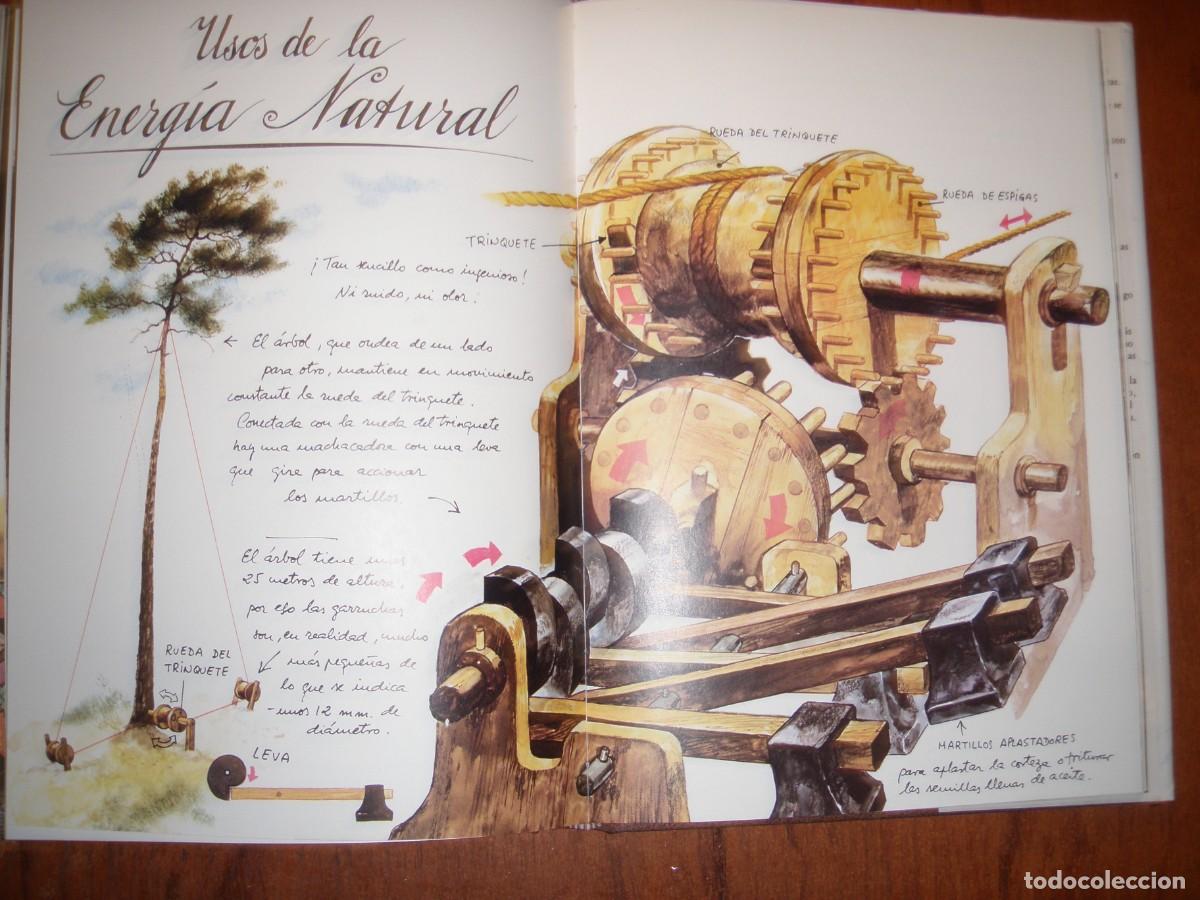 Usos de la
Energía Natural
RUEDA DEL TRINQUETE
RUEDA DE ESPIGAS
TRINQUETE
¡Tan sencillo como ingenioso!
Ni ruido, ni olor!
El árbol, que ondea de un lado
para otro, mantiene en movimiento
constante la rueda del trinquete.
Conectada con la rueda del trinquete
hay una machacadora con una leva
que gira para accionar
los martillos.
El árbol tiene unos
25 metros de altura,
por eso las garruchas
son, en realidad, mucho
más pequeñas de
lo que se indica
-unos 12 mm. de
diámetro.
RUEDA DEL
TRINQUETE
LEVA
MARTILLOS APLASTADORES
para aplastar la corteza o triturar
las semillas llenas de aceite.
todocoleccion